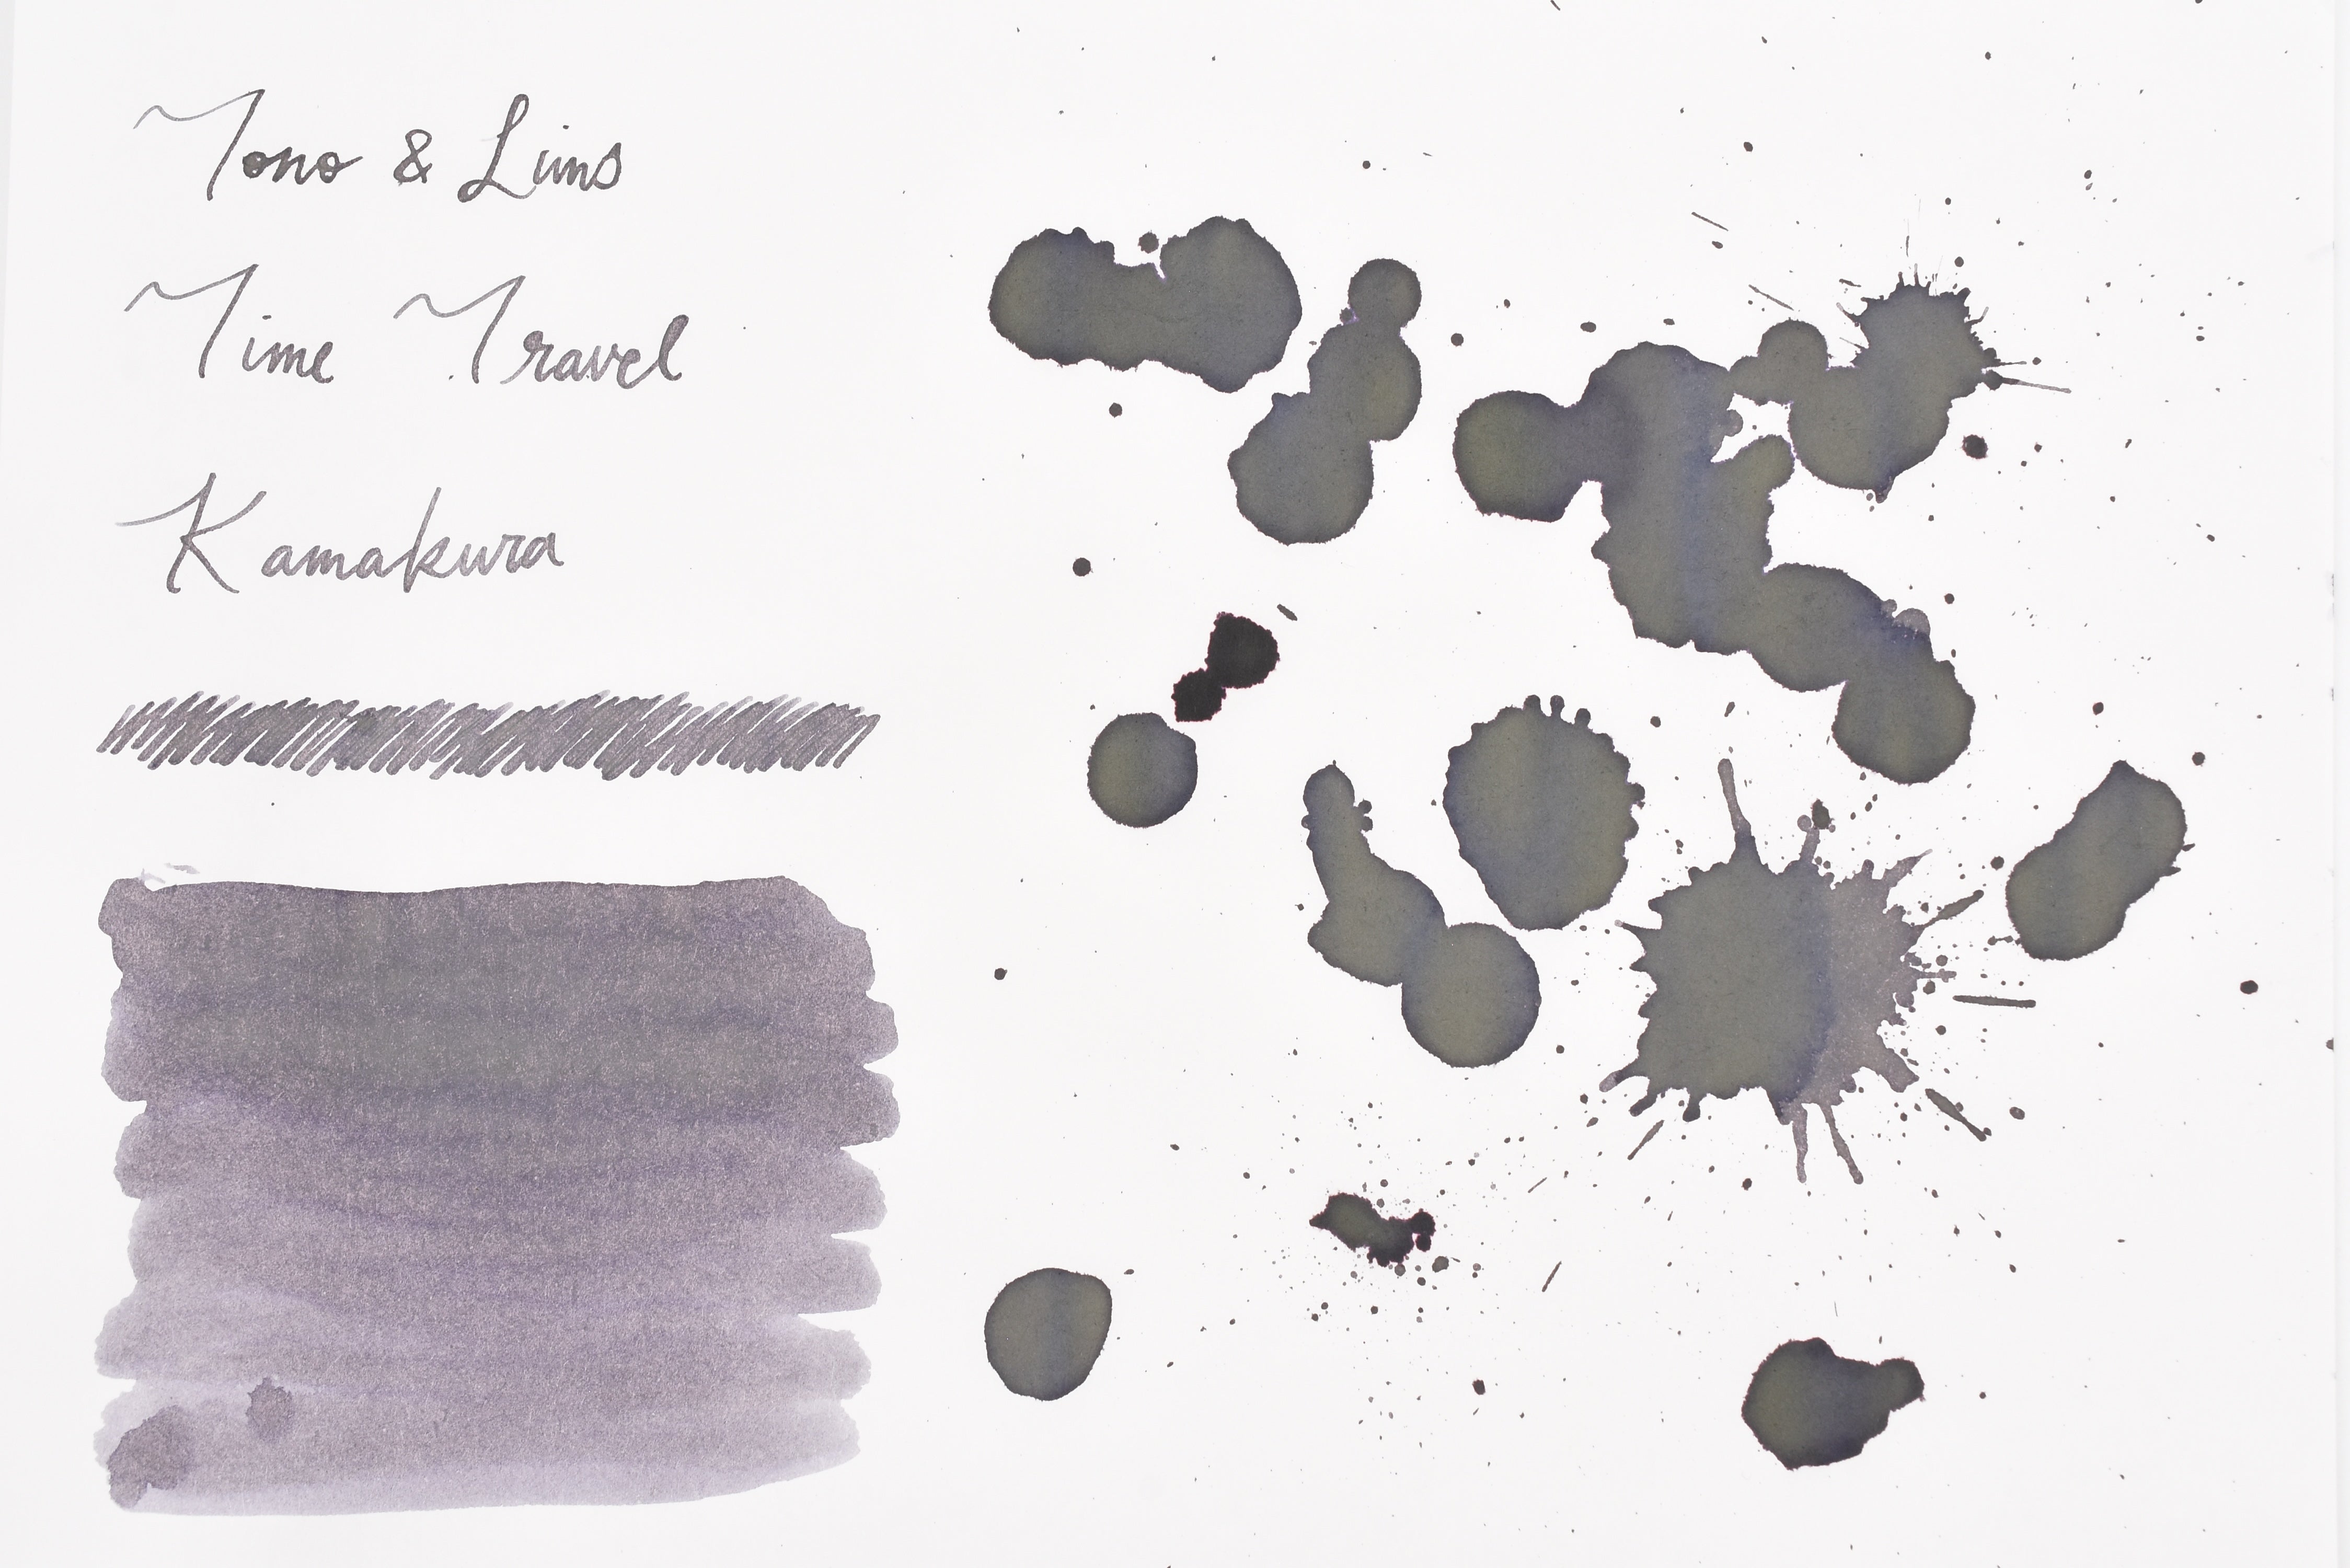 Tono & Lims
Time Travel
Kamakura